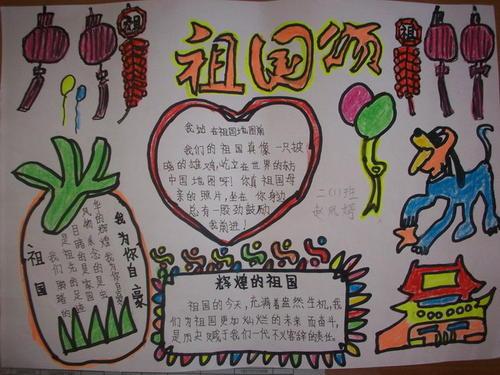 祖国颂
祖
祖
我站在祖国地图前
我们的祖国真像一只披
晓的雄鸡,屹立在世界的东方
中国地图呀!你真祖国母
亲的照片,坐在你身边
总有一股劲鼓励
我前进!
二(1)班
祖国
我为你自豪
辉煌的祖国
祖国的今天,充满着盎然生机,我
们为祖国更加灿烂的未来而奋斗,
是历史赋于我们一代不义容辞的责任。